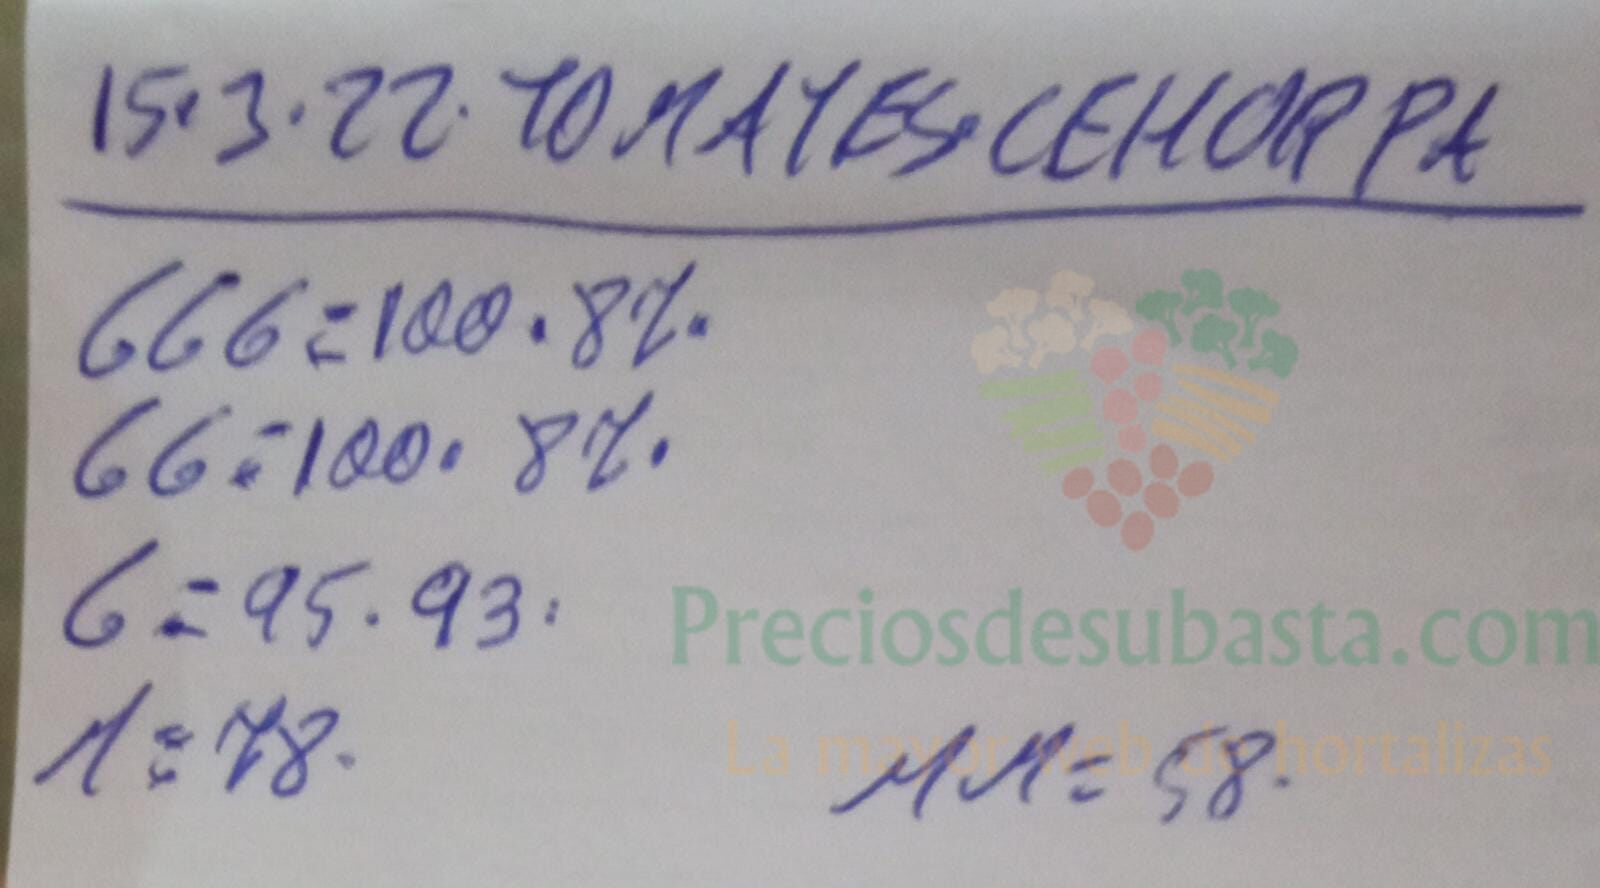 15.3.22. TOMATES. CEHORPA
GGG=100.87.
GG=100. 87.
G=95.93.
Preciosdesubasta.com
La mayor web de hortalizas
M=78. MM=58.